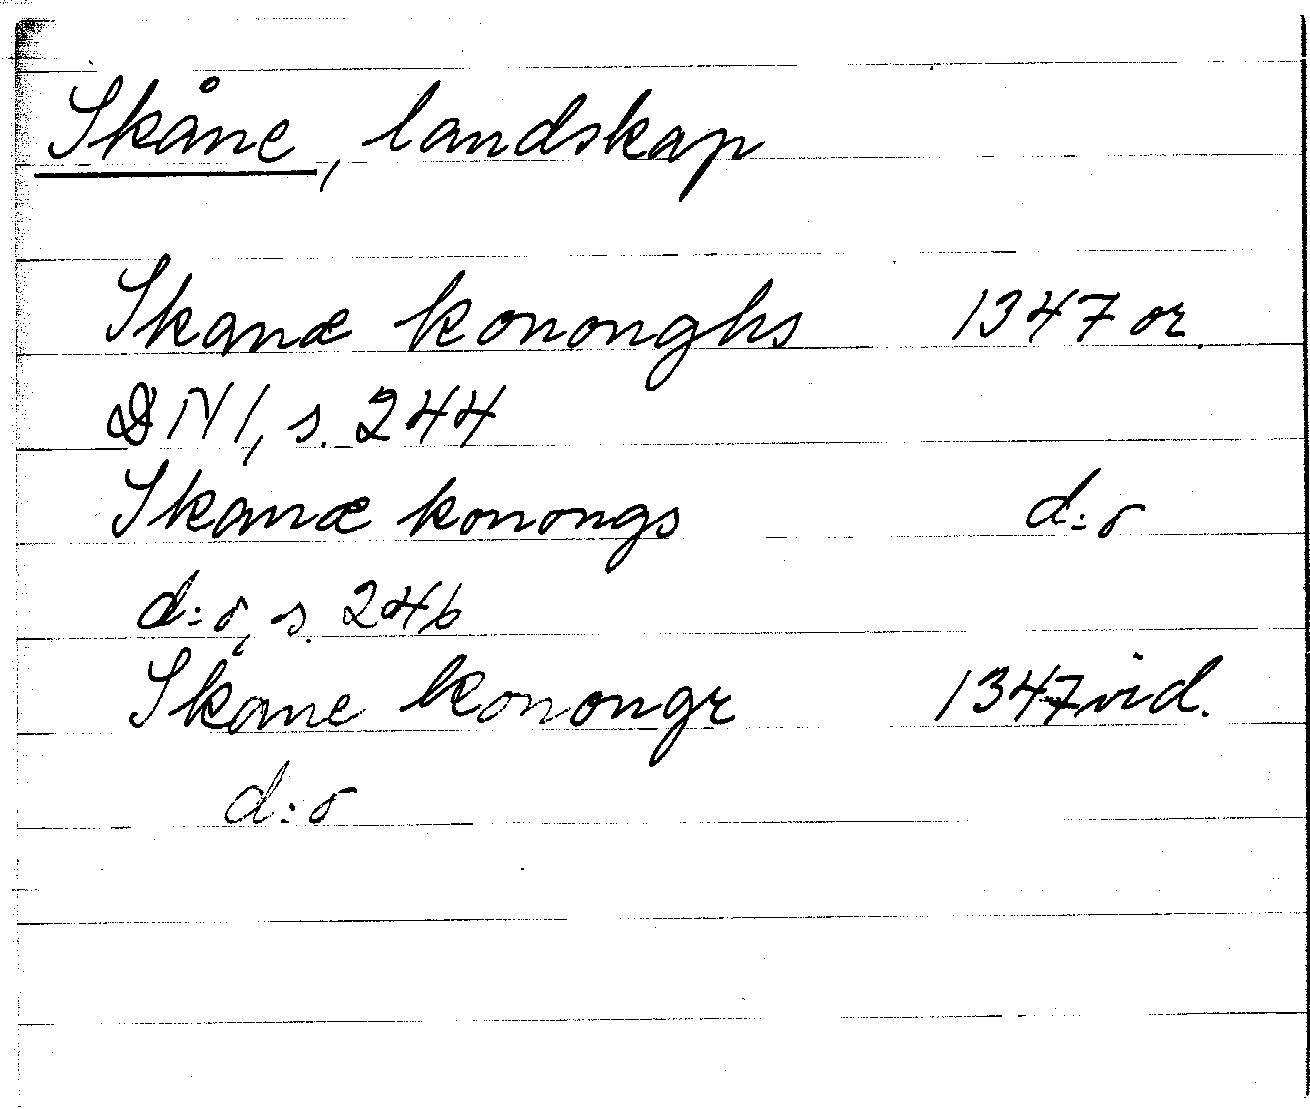 Skåne, landskap
Skanæ kononghs 1347 or.
DN 1, s. 244
Skanæ konongs d:o
d:o, s. 246
Skane konongr 1347 vid.
d:o